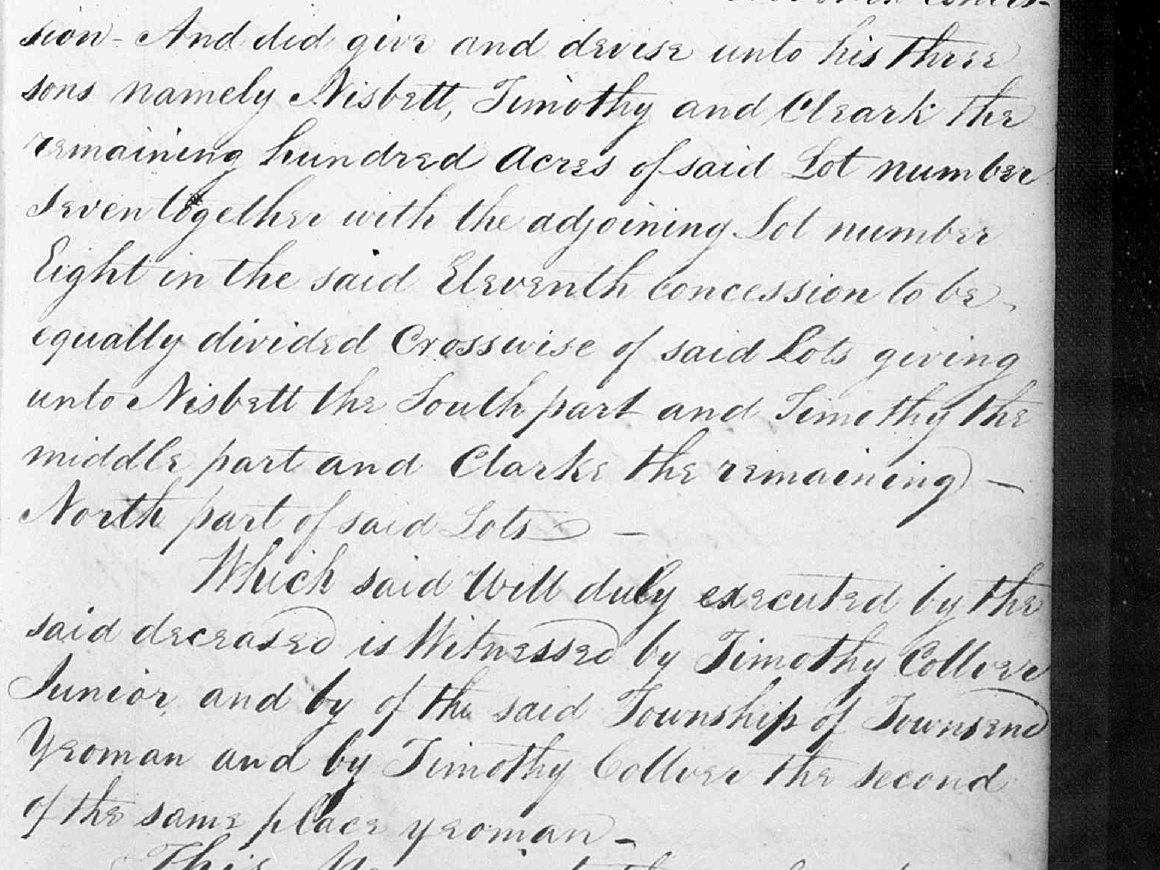 sion - And did give and devise unto his three
sons namely Nisbett, Timothy and Cleark the
remaining hundred Acres of said Lot number
Seven together with the adjoining Lot number
Eight in the said Eleventh Concession to be
equally divided Crosswise of said Lots giving
unto Nisbett the South part and Timothy the
middle part and Clarke the remaining —
North part of said Lots —
Which said Will duly executed by the
said deceased is Witnessed by Timothy Collver
Junior, and by of the said Township of Townsend
Yeoman and by Timothy Collver the second
of the same place yeoman —
This